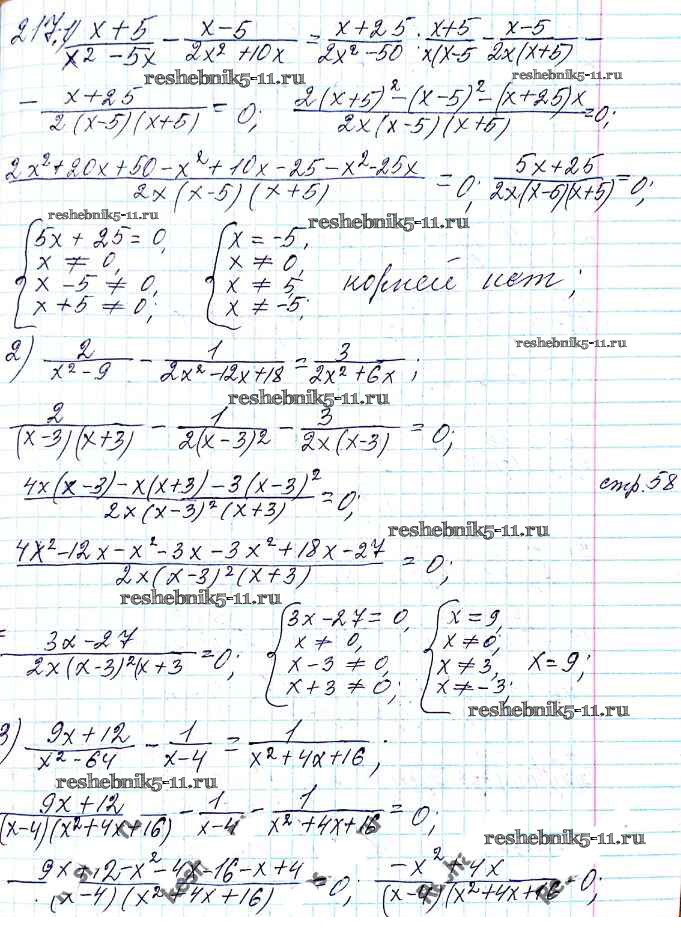 217. 1) (x+5)/(x² -5x) - (x-5)/(2x² +10x) = (x+25)/(2x² -50) ; (x+5)/(x(x-5) - (x-5)/(2x(x+5) -
reshebnik5-11.ru reshebnik5-11.ru
- (x+25)/(2(x-5)(x+5)) = 0; (2(x+5)² -(x-5)² -(x+25)x)/(2x(x-5)(x+5)) =0;
(2x²+20x+50-x²+10x-25-x²-25x)/(2x(x-5)(x+5)) = 0; (5x+25)/(2x(x-5)(x+5)) =0;
reshebnik5-11.ru reshebnik5-11.ru
{ 5x+25=0, { x=-5,
x≠0, x≠0,
x-5≠0, x≠5,
x+5≠0; x≠-5; корней нет;
reshebnik5-11.ru
2) 2/(x²-9) - 1/(2x²-12x+18) = 3/(2x²+6x) ;
reshebnik5-11.ru
2/((x-3)(x+3)) - 1/(2(x-3)²) - 3/(2x(x-3)) =0;
(4x(x-3)-x(x+3)-3(x-3)²)/(2x(x-3)²(x+3)) =0; стр.58
reshebnik5-11.ru
(4x²-12x-x²-3x-3x²+18x-27)/(2x(x-3)²(x+3)) =0;
reshebnik5-11.ru
= (3x-27)/(2x(x-3)²(x+3) =0; { 3x-27=0, { x=9,
x≠0, x≠0,
x-3≠0, x≠3, x=9;
x+3≠0; x≠-3;
reshebnik5-11.ru
3) (9x+12)/(x³-64) - 1/(x-4) = 1/(x²+4x+16) ;
reshebnik5-11.ru
(9x+12)/((x-4)(x²+4x+16)) - 1/(x-4) - 1/(x²+4x+16) =0;
reshebnik5-11.ru
(9x+12-x²-4x-16-x+4)/((x-4)(x²+4x+16)) =0; (-x²+4x)/((x-4)(x²+4x+16 =0;